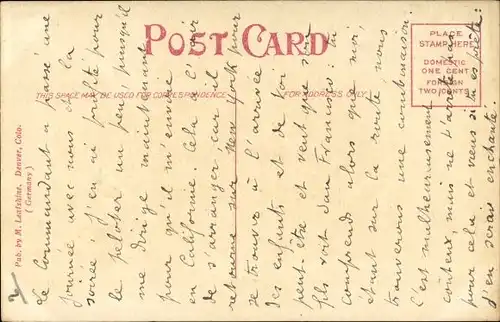 POST CARD
THIS SPACE MAY BE USED FOR CORRESPONDENCE
FOR ADDRESS ONLY
PLACE
STAMP HERE
DOMESTIC
ONE CENT
FOREIGN
TWO CENTS
Pub. by M. Denver, Colo.
(Germany)
Le Commandant a passé une
journée avec nous et la
soirée; j'en ai profité pour
le peloter un peu puisqu'il
me dirige maintenant
pour qu'il m'envoie
en Californie. Cela a l'air
de s'arranger car il
retourne sur New York pour
se trouver à l'arrivée
des enfants et de toi
peut-être et veut que son
fils voit San Francisco: tu
comprends alors que moi,
étant sur la route nous
trouverons une combinaison.
C'est malheureusement
coûteux, mais ne t'arrête pas
pour cela et viens si tu es prête:
j'en serai enchanté.